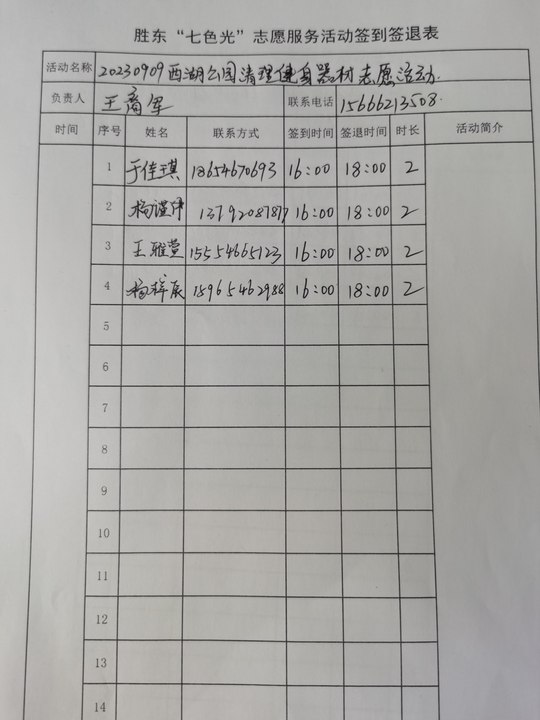 胜东“七色光”志愿服务活动签到签退表
活动名称 20230909西湖公园清理健身器材志愿活动
负责人 王裔军 联系电话 15666213508
时间 序号 姓名 联系方式 签到时间 签退时间 时长 活动简介
1 于佳琪 18654670693 16:00 18:00 2
2 杨谨伊 13792087877 16:00 18:00 2
3 王雅萱 15554665123 16:00 18:00 2
4 杨梓辰 18965462988 16:00 18:00 2
5
6
7
8
9
10
11
12
13
14